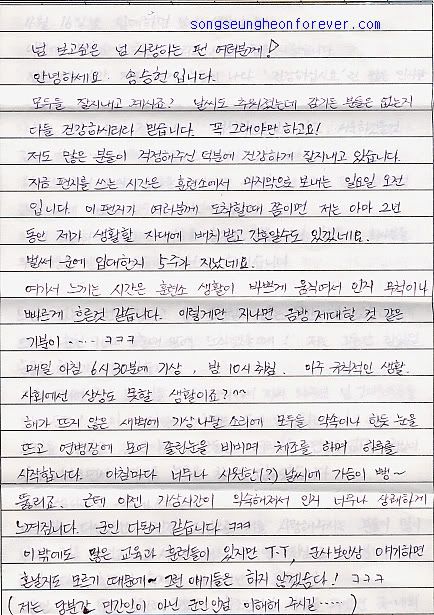 songseungheonforever.com
넘 보고싶은 넘 사랑하는 팬 여러분께♡
안녕하세요. 송승헌 입니다.
모두들 잘지내고 계시죠? 날씨도 추워졌는데 감기든 분들은 없는지
다들 건강하시리라 믿습니다. 꼭 그래야만 하고요!
저도 많은 분들이 걱정해주신 덕분에 건강하게 잘지내고 있습니다.
지금 편지를 쓰는 시간은 훈련소에서 마지막으로 보내는 일요일 오전
입니다. 이 편지가 여러분께 도착할때 쯤이면 저는 아마 2년
동안 제가 생활할 자대에 배치 받고 간후일수도 있겠네요.
벌써 군에 입대한지 5주가 지났네요.
여기서 느끼는 시간은 훈련소 생활이 바쁘게 움직여서 인지 무척이나
빠르게 흐른것 같습니다. 이렇게만 지나면 금방 제대할 것 같은
기분이 .... ㅋㅋㅋ
매일 아침 6시 30분에 기상, 밤 10시 취침. 아주 규칙적인 생활.
사회에선 상상도 못할 생활이죠? ^^
해가 뜨지 않은 새벽에 기상나팔 소리에 모두들 약속이나 한듯 눈을
뜨고 연병장에 모여 졸린눈을 비비며 체조를 하며 하루를
시작합니다. 아침마다 너무나 시원한(?) 날씨에 가슴이 뻥~
뚫리죠. 근데 이젠 기상시간이 익숙해져서 인지 너무나 상쾌하게
느껴집니다. 군인 다된거 같습니다 ㅋㅋㅋ
이 밖에도 많은 교육과 훈련들이 있지만 T.T, 군사보안상 얘기하면
혼날지도 모르기 때문에~ 그런 얘기들은 하지 않겠습다! ㅋㅋㅋ
(저는 당분간 민간인이 아닌 군인인걸 이해해 주시길.....)